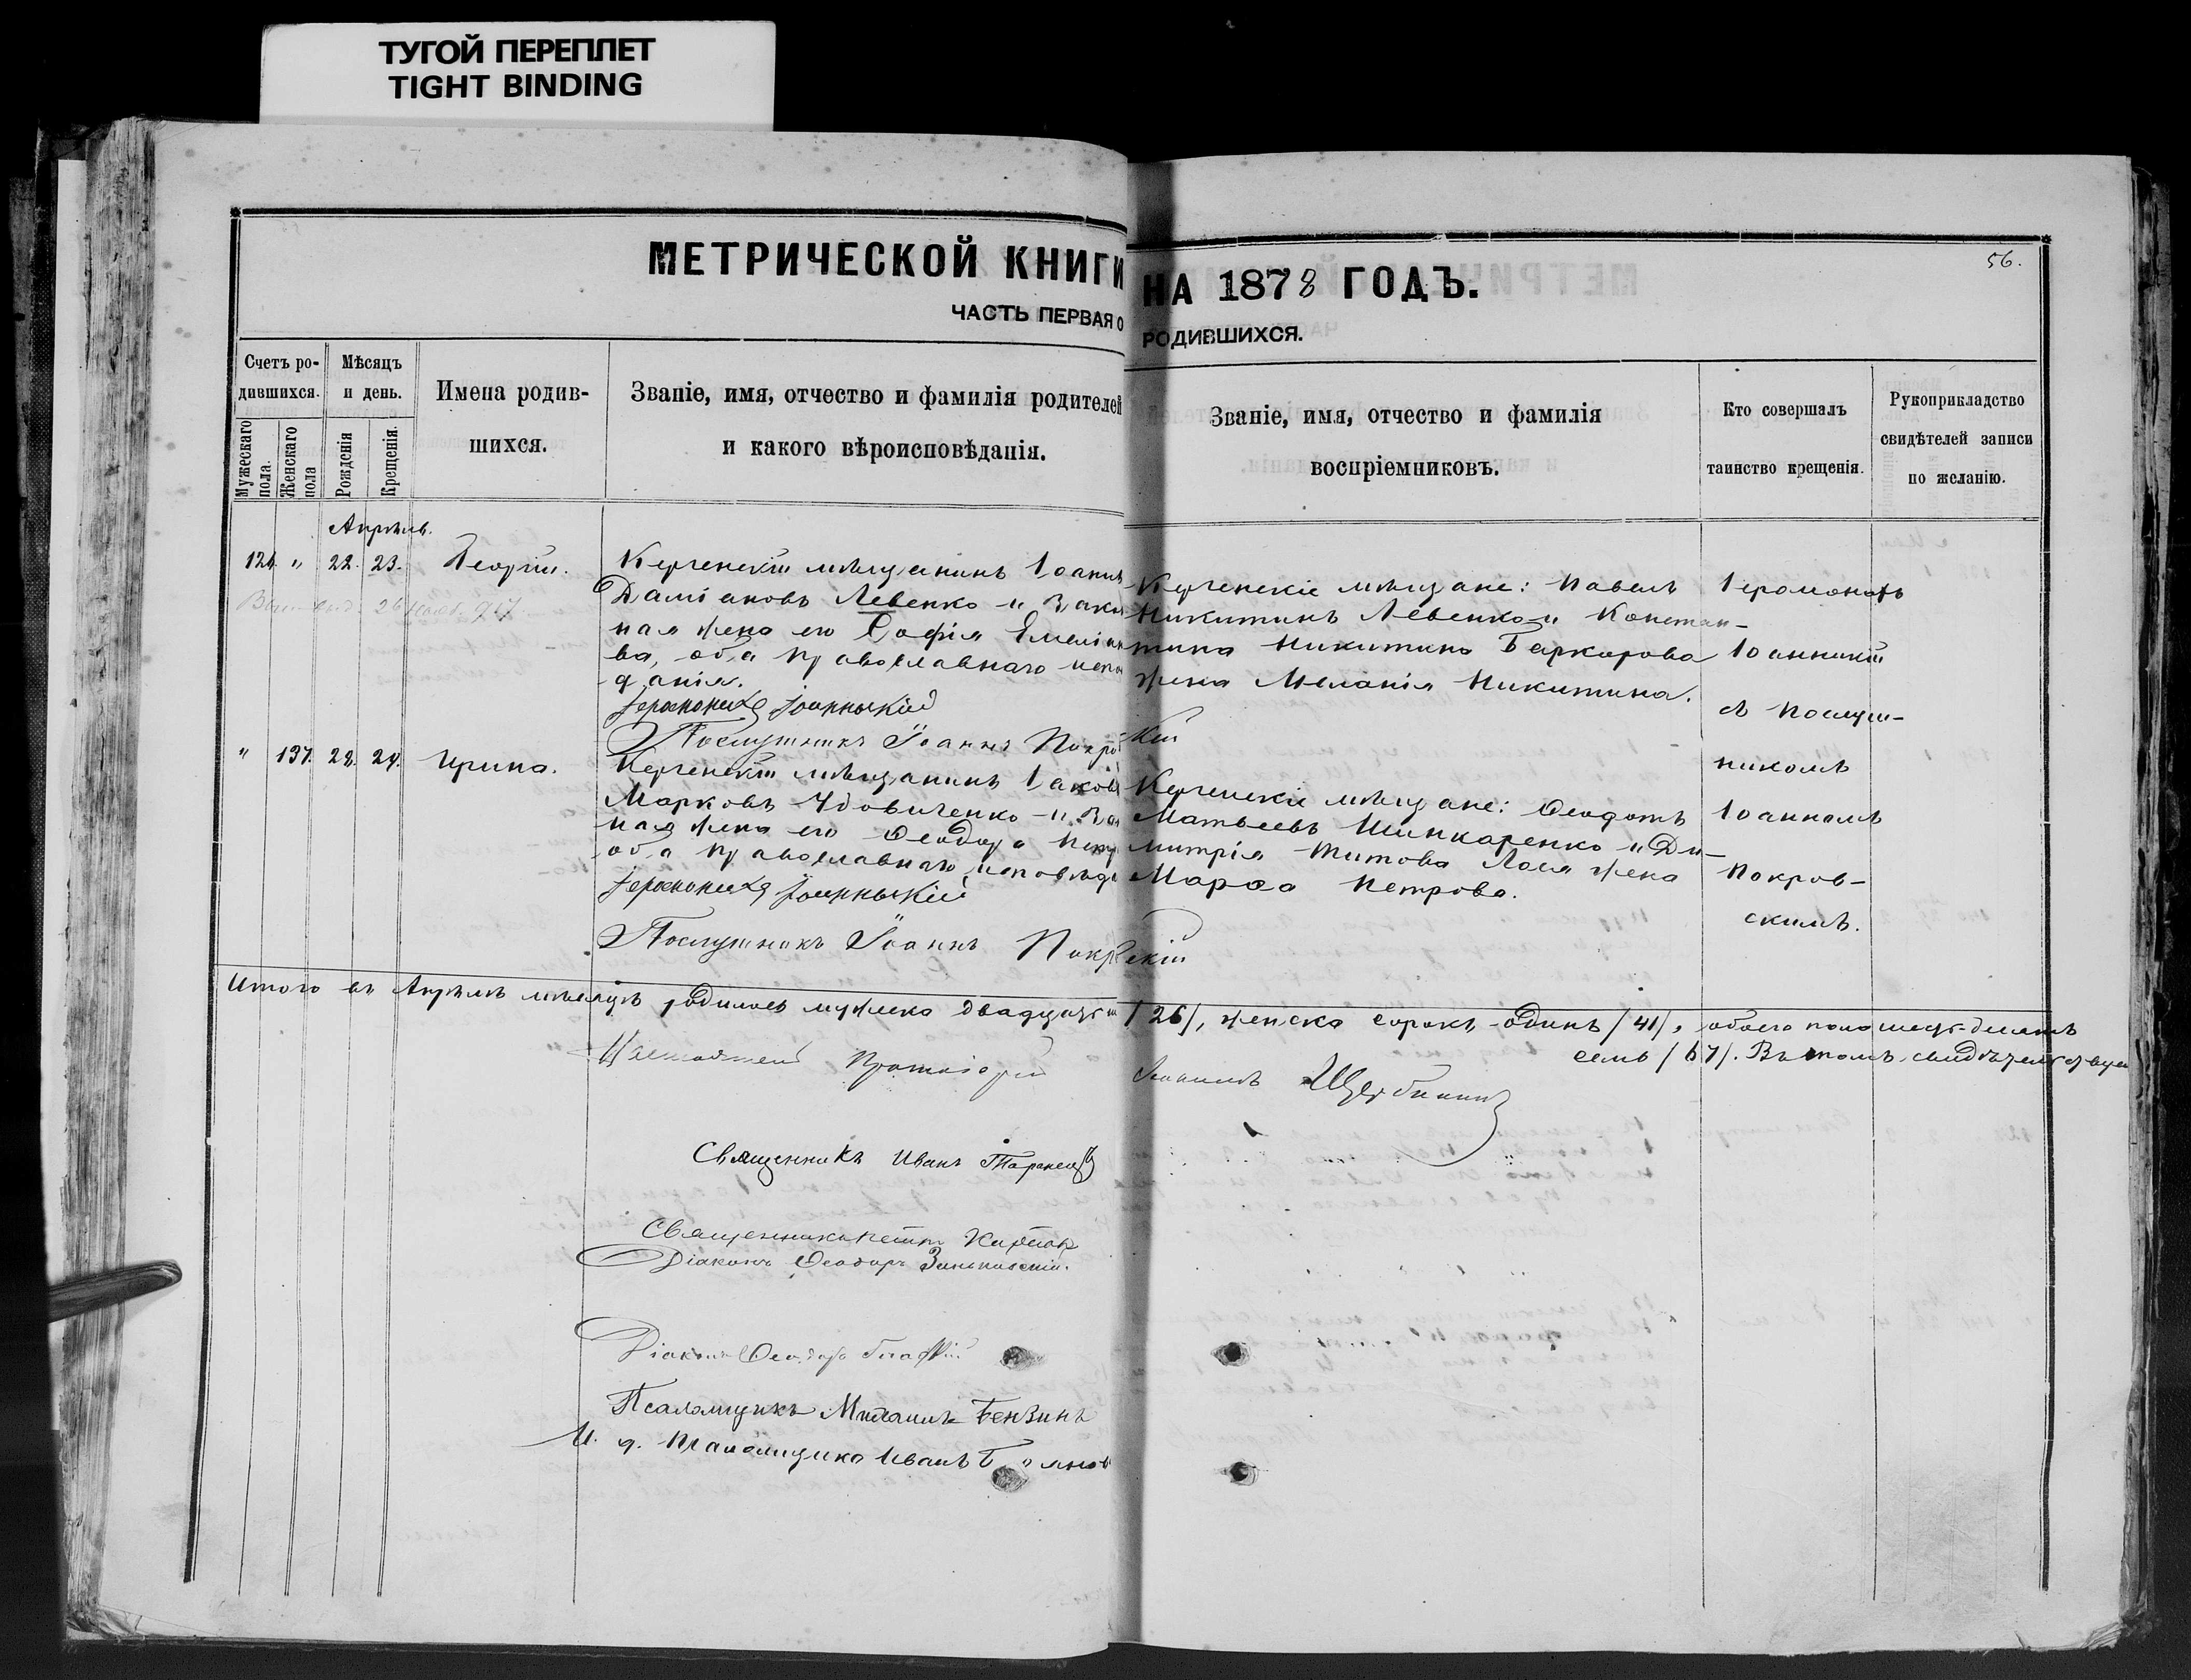 ТУГОЙ ПЕРЕПЛЕТ
TIGHT BINDING
МЕТРИЧЕСКОЙ КНИГИ НА 1878 ГОДЪ.
56.
ЧАСТЬ ПЕРВАЯ О РОДИВШИХСЯ.
Счетъ ро-
дившихся.
Мужескаго пола.
Женскаго пола
Мѣсяцъ
и день.
Рожденія
Крещенія.
Имена родив-
шихся.
Званіе, имя, отчество и фамилія родителей
и какого вѣроисповѣданія.
Званіе, имя, отчество и фамилія
воспріемниковъ.
Кто совершалъ
таинство крещенія.
Рукоприкладство
свидѣтелей записи
по желанію.
Апрѣль.
124. " 22. 23. Георгій.
Керченскій мѣщанинъ Іоаннъ
Даміановъ Левенко и Закон
ная жена его Софія Емеліано
ва, оба Православнаго испо
данія.
Іеромонахъ Іоанникій
Послушникъ Іоаннъ Покро кій
Керченскіе мѣщане: Павелъ
Никитинъ Левенко и Констан-
тина Никитина
жена Меланія Никитина.
Іеромонахъ
Іоанникій
съ Послуш-
никомъ
Іоанномъ
Покров-
скимъ.
" 137. 22. 24. Ирина.
Керченскій мѣщанинъ Іаковъ
Марковъ Удовиченко и За
ная жена его Ѳеодора Петр
оба Православнаго исповѣда
Іеромонахъ Іоанникій
Послушникъ Іоаннъ Покр скій
Керченскіе мѣщане: Ѳеодотъ
Матвѣевъ Шинкаренко и Ди-
митрія Титова жена
Марѳа Петрова.
Итого въ Апрѣлѣ мѣсяцѣ родилось мужеска двадцать /26/, женска сорокъ-одинъ /41/, обоего пола шесть-десятъ
семь /67/. Въ томъ свидѣтельствуемъ
Настоятель Протоіерей Щербинин
Священникъ Иванъ
Священникъ Петръ
Діаконъ Ѳеодоръ
Діаконъ Ѳеодоръ
Псаломщикъ Михаилъ Бензинъ
И. д. Псаломщика Иванъ